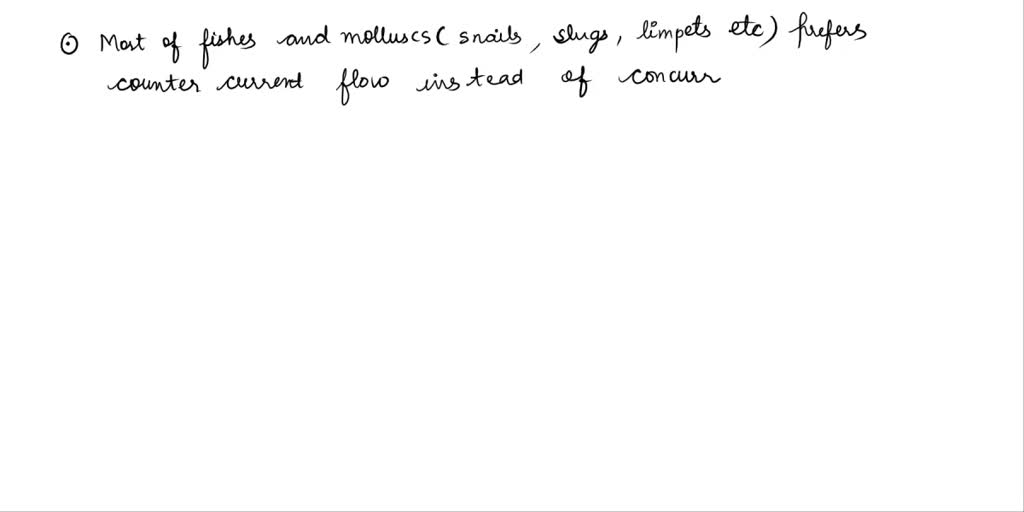 ⊙ Most of fishes and molluscs ( snails, slugs, limpets etc) prefers
counter current flow instead of concurr